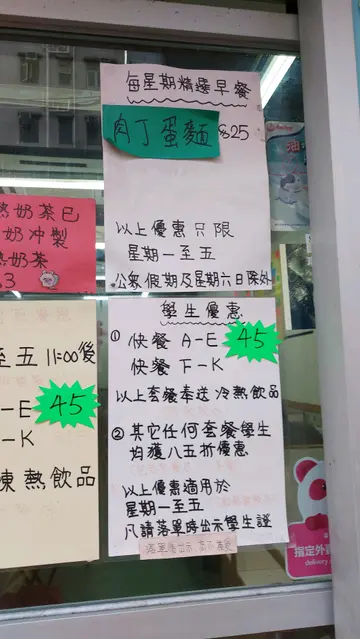 每星期精選早餐
肉丁蛋麵 $25
以上優惠只限
星期一至五
公衆假期及星期六日除外
熱奶茶已
奶冲製
熱奶茶
3
至五 11:00後
-E 45
-K
凍熱飲品
學生優惠
① 快餐 A-E 45
快餐 F-K
以上套餐奉送冷熱飲品
② 其它任何套餐學生
均獲八五折優惠
以上優惠適用於
星期一至五
凡請落單時出示學生證
指定外
delivery